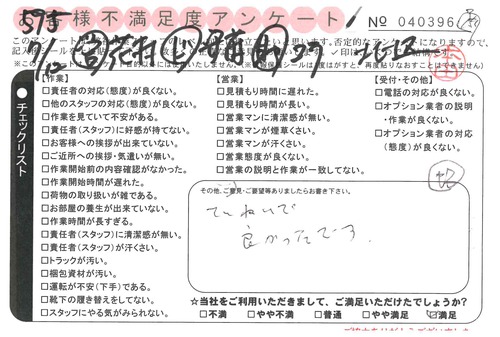 お客様不満足度アンケート
№ 040396
【作業】
□責任者(態度)が良くない。
□他のスタッフの対応(態度)が良くない。
□作業を見ていて不安がある。
□責任者(スタッフ)に好感が持てない。
□お客様への挨拶が出来ていない。
□ご近所への挨拶・気遣いが無い。
□作業開始前の内容確認がなかった。
□作業開始時間が遅れた。
□荷物の取り扱いが雑である。
□お部屋の養生が出来ていない。
□作業時間が長すぎる。
□責任者(スタッフ)に清潔感が無い。
□責任者(スタッフ)が汗くさい。
□トラックが汚い。
□梱包資材が汚い。
□運転が不安(下手)である。
□靴下の履き替えをしてない。
□スタッフにやる気がみられない。
チェックリスト
【営業】
□見積もり時間に遅れた。
□見積もり時間が長い。
□営業マンに清潔感が無い。
□営業マンが煙草くさい。
□営業マンが汗くさい。
□営業態度が良くない。
□営業の説明と作業が一致してない。
【受付・その他】
□電話の対応が良くない。
□オプション業者の説明
・作業が良くない。
□オプション業者の対応
(態度)が良くない。
その他、ご意見・ご要望等ありましたらお書き下さい。
ていねいで
良かったです。
☆当社をご利用いただきまして、ご満足いただけたでしょうか?
□不満 □やや不満 □普通 □やや満足 ☑満足
ご協力ありがとうございました